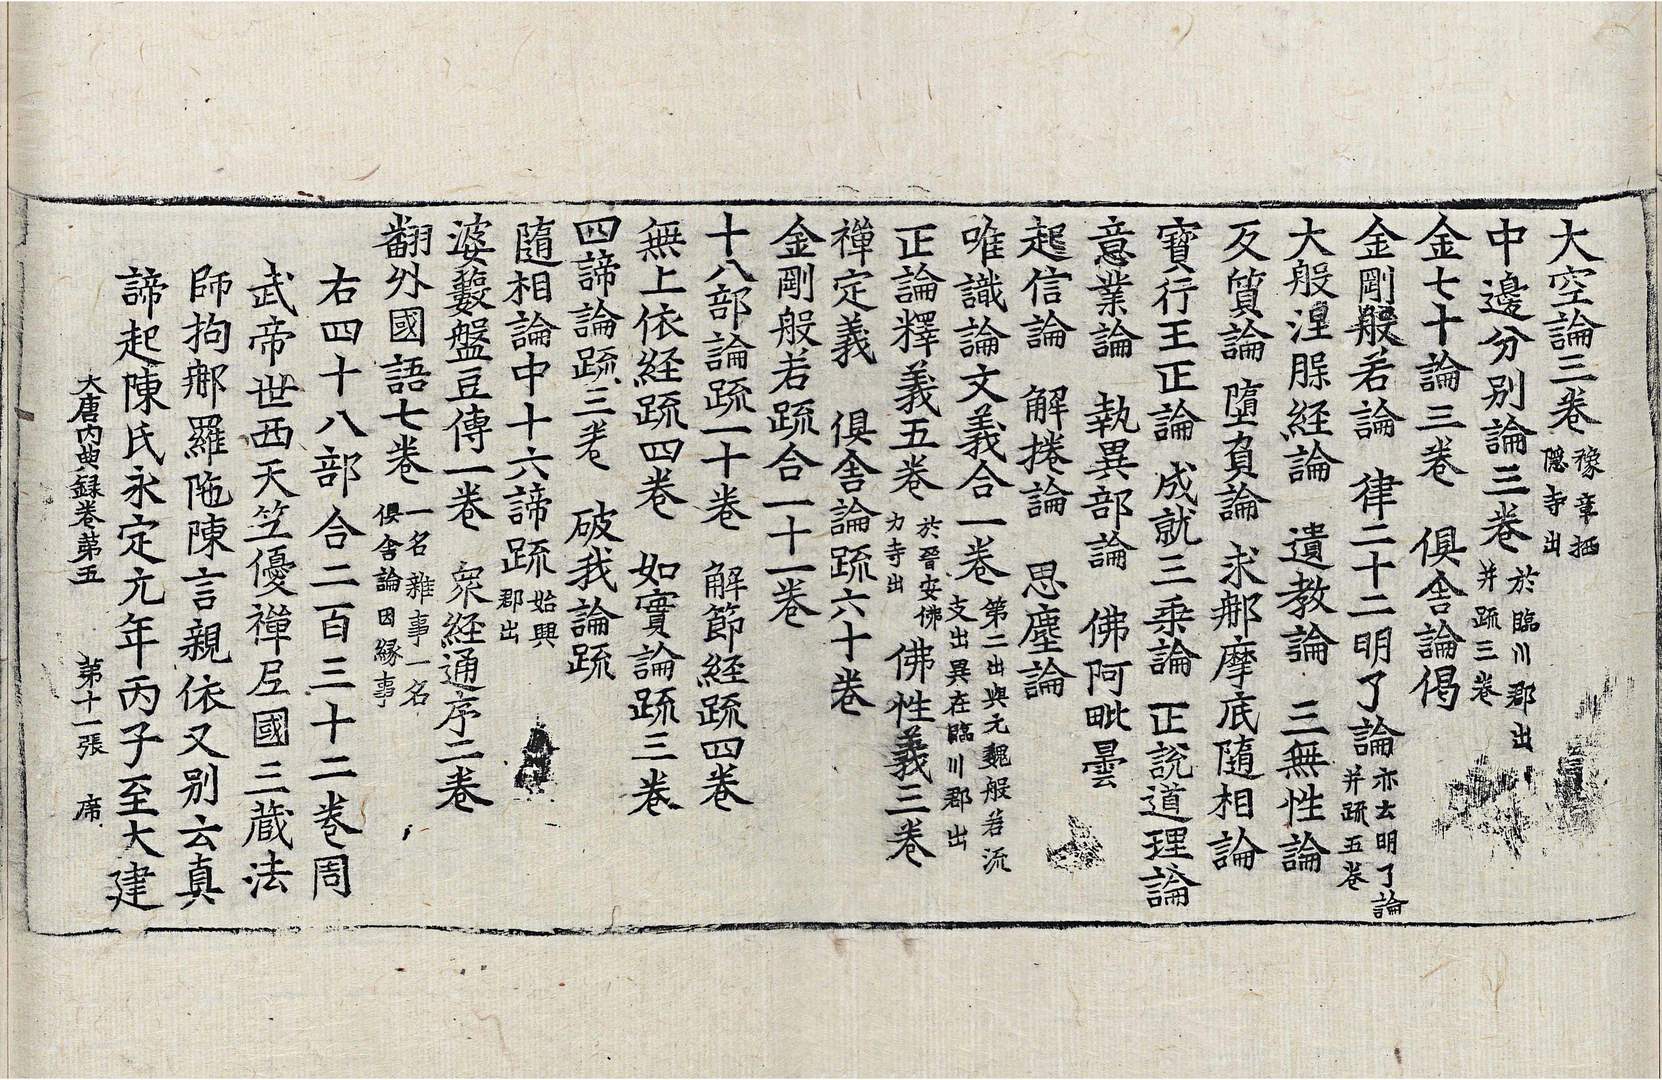 大空論三卷豫章栖隱寺出
中邊分別論三卷於臨川郡出并疏三卷
金七十論三卷 俱舍論偈
金剛般若論 律二十二明了論亦云明了論并疏五卷
大般涅脲経論 遺教論 三無性論
反質論 墮負論 求郍摩底隨相論
寶行王正論 成就三乘論 正說道理論
意業論 執異部論 佛阿毗曇
起信論 解捲論 思塵論
唯識論文義合一卷第二出與元魏般若流支出異在臨川郡出
正論釋義五卷於晉安佛力寺出 佛性義三卷
禪定義 俱舍論疏六十卷
金剛般若疏合一十一卷
十八部論疏一十卷 解節経疏四卷
無上依経疏四卷 如實論疏三卷
四諦論疏三卷 破我論疏
隨相論中十六諦疏始興郡出
婆藪盤豆傳一卷 衆経通序二卷
翻外國語七卷一名雜事一名俱舍論因縁事
右四十八部合二百三十二卷周
武帝世西天笠優禪尼國三蔵法
師拘郍羅陁陳言親依又別云真
諦起陳氏永定元年丙子至大建
大唐内典録卷第五 第十一張 席